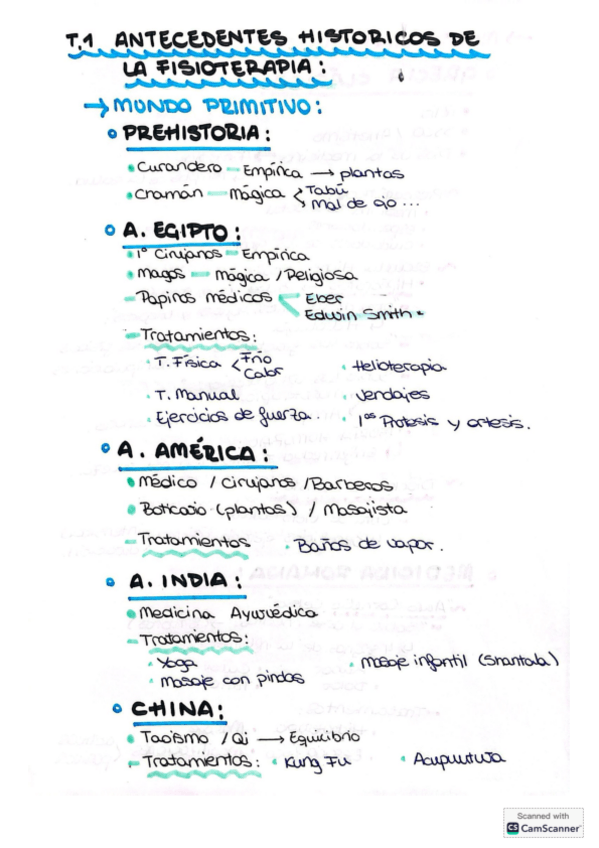 T.1 ANTECEDENTES HISTORICOS DE
LA FISIOTERAPIA:
→ MUNDO PRIMITIVO:
PREHISTORIA:
Curandero — Empírica → plantas
Cramán — Mágica < Tabú
Mal de ojo ...
A. EGIPTO:
1º Cirujanos — Empírica
Magos — Mágica / Religiosa
- Papiros médicos < Eber
Edwin Smith
- Tratamientos:
T. Física < Frío
Calor
Helioterapia
T. Manual
Vendajes
Ejercicios de fuerza.
1as Protesis y ortesis.
A. AMÉRICA:
Médico / Cirujanos / Barberos
Boticario (plantas) / Masajista
- Tratamientos
Baños de vapor.
A. INDIA:
Medicina Ayurvédica
- Tratamientos:
Yoga
Masaje infantil (Shantala)
Masaje con pindas
CHINA:
Taoísmo / Qi → Equilibrio
- Tratamientos:
Kung Fu
Acupuntura
Scanned with
CS CamScanner